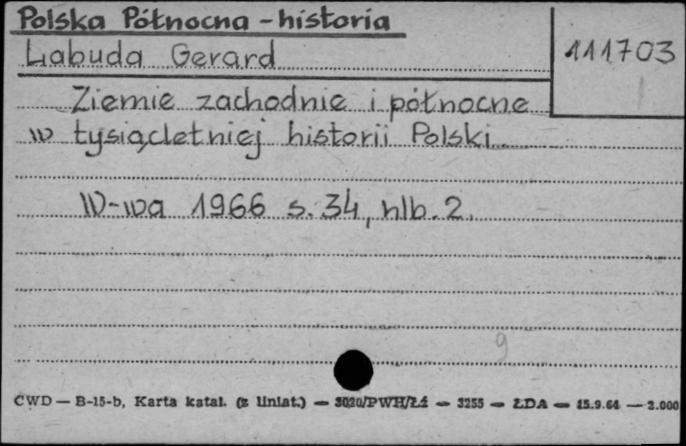 Polska Północna - historia
Labuda Gerard
111703
Ziemie zachodnie i północne
w tysiącletniej historii Polski
W-wa 1966 s. 34, nlb. 2.
9
CWD — B-15-b, Karta katal. (z liniat.) — 3020/PWH/Łź — 3255 — ŁDA — 15.9.64 — 2.000